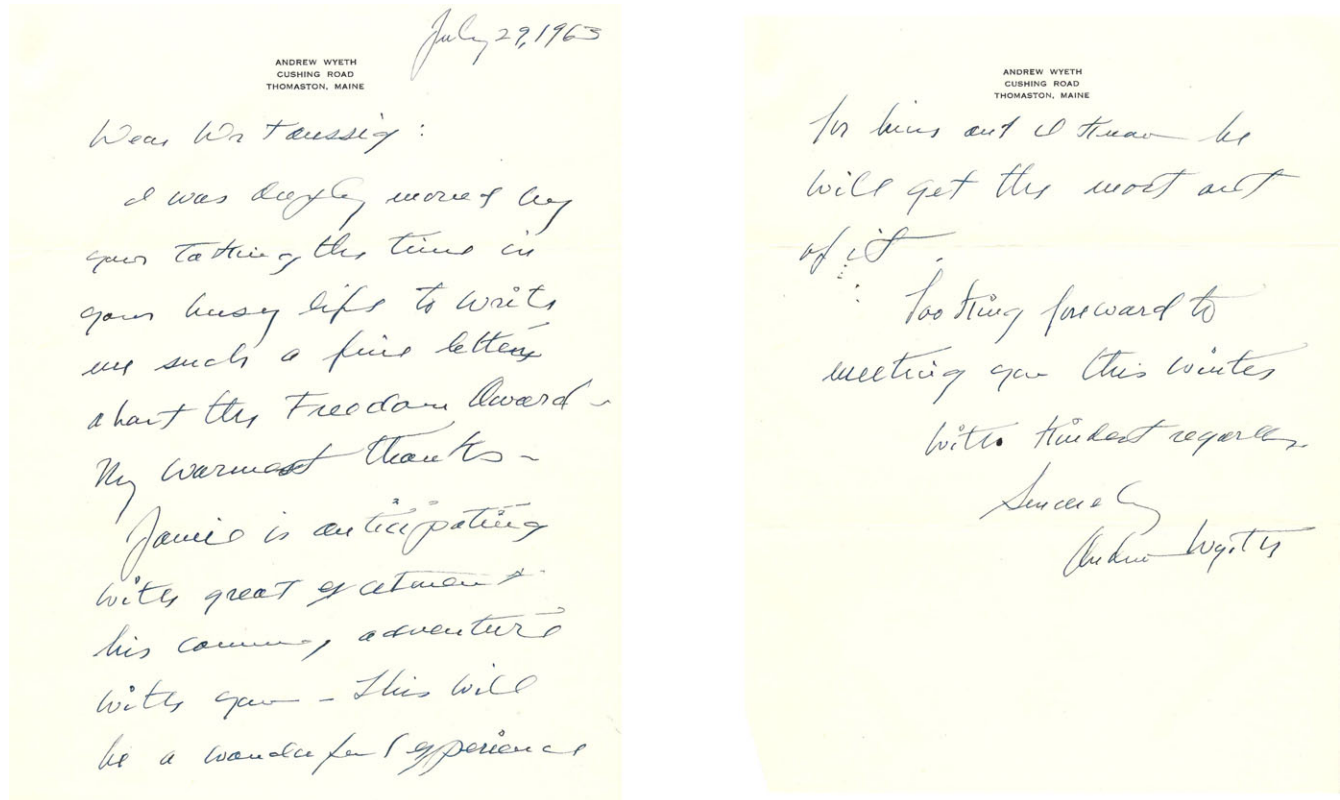 July 29, 1963
ANDREW WYETH
CUSHING ROAD
THOMASTON, MAINE
Dear Dr Taussig :
I was deeply moved by
your taking the time in
your busy life to write
me such a fine letter
about the Freedom Award –
My warmest thanks –
Jamie is anticipating
with great excitement
his coming adventure
with you – This will
be a wonderful experience
ANDREW WYETH
CUSHING ROAD
THOMASTON, MAINE
for him and I know he
will get the most out
of it .
Looking forward to
meeting you this winter
with kindest regards
Sincerely
Andrew Wyeth